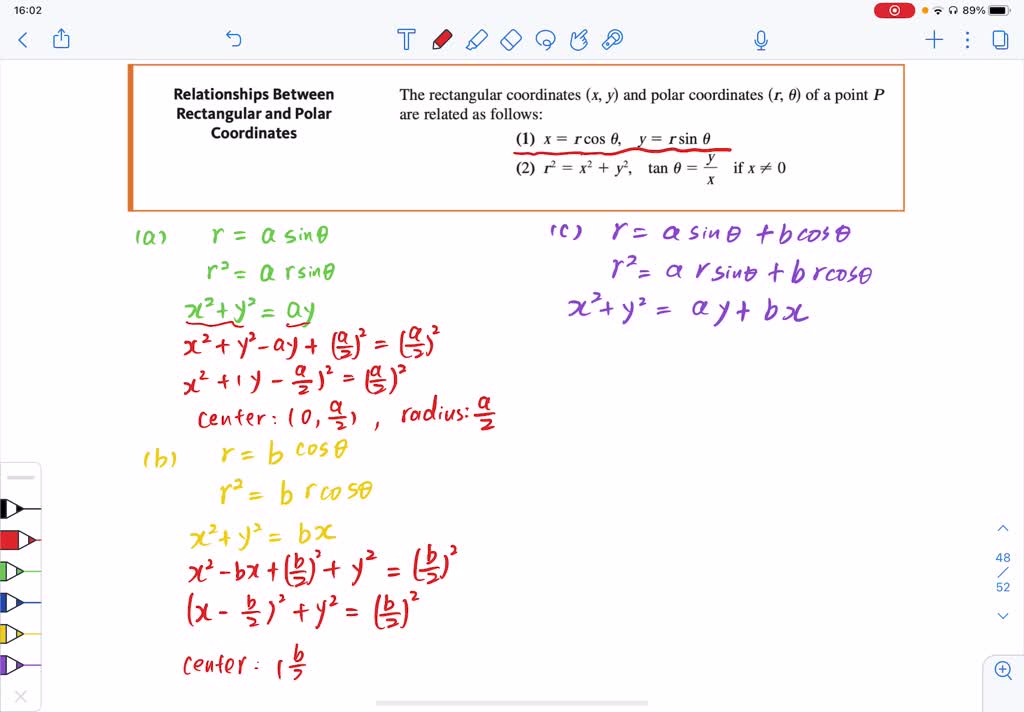 16:02
89%
Relationships Between
Rectangular and Polar
Coordinates
The rectangular coordinates (x, y) and polar coordinates (r, θ) of a point P
are related as follows:
(1) x = r cos θ, y = r sin θ
(2) r² = x² + y², tan θ = y/x if x ≠ 0
(a) r = a sinθ
r² = a r sinθ
x² + y² = ay
x² + y² - ay + (a/2)² = (a/2)²
x² + (y - a/2)² = (a/2)²
center: (0, a/2), radius: a/2
(b) r = b cosθ
r² = b r cosθ
x² + y² = bx
x² - bx + (b/2)² + y² = (b/2)²
(x - b/2)² + y² = (b/2)²
center: (b/2
(c) r = a sinθ + b cosθ
r² = a r sinθ + b r cosθ
x² + y² = ay + bx
48
/
52